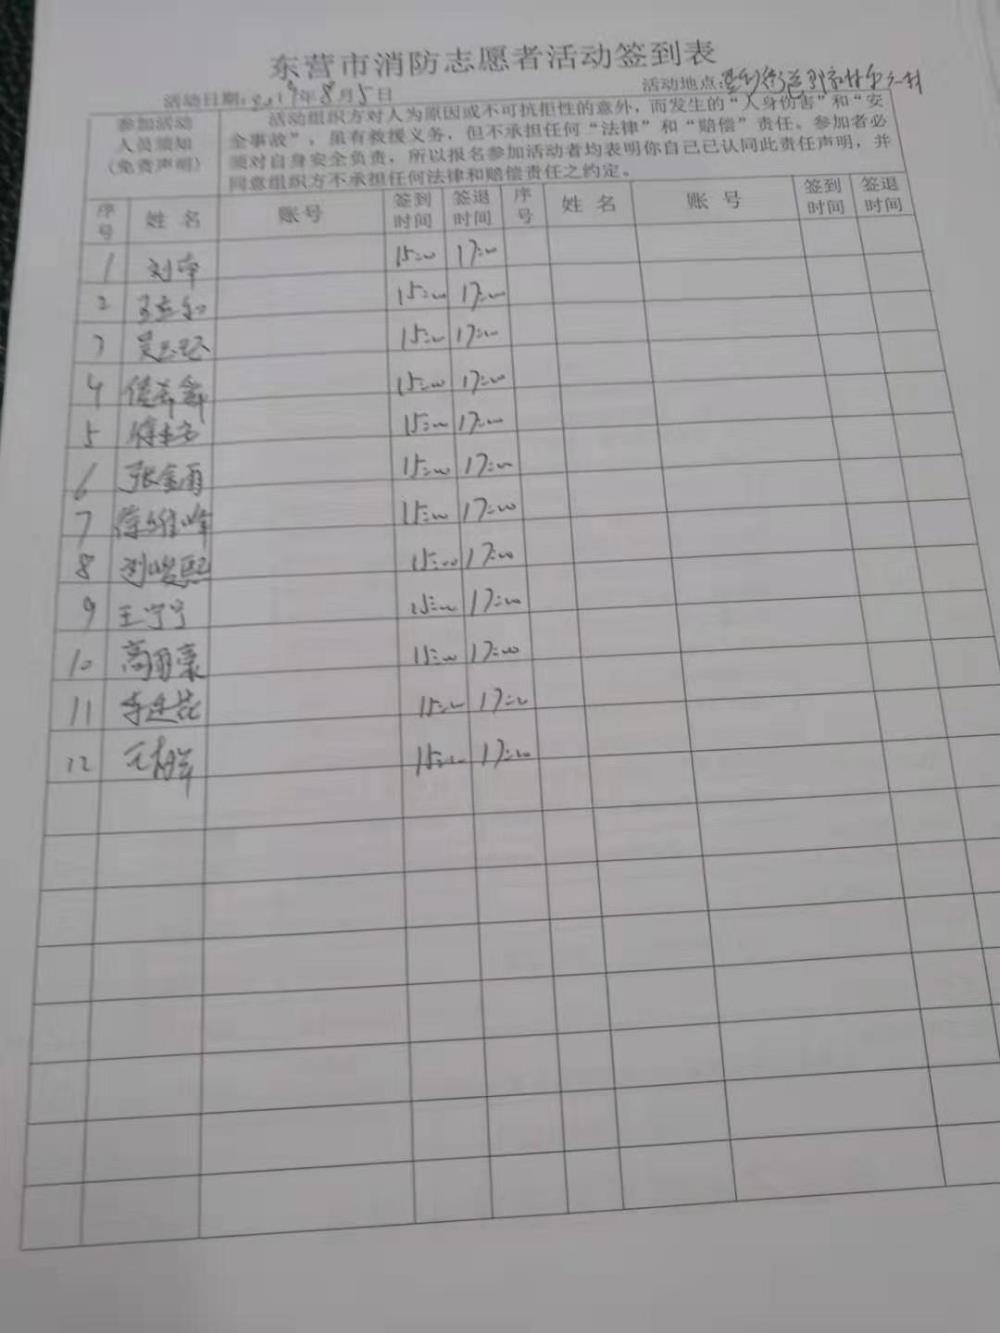 东营市消防志愿者活动签到表
活动日期:2019年8月5日 活动地点:
参加活动
人员须知
(免责声明)
活动组织方对人为原因或不可抗拒性的意外,而发生的“人身伤害”和“安
全事故”,虽有救援义务,但不承担任何“法律”和“赔偿”责任。参加者必
须对自身安全负责,所以报名参加活动者均表明你自己已认同此责任声明,并
同意组织方不承担任何法律和赔偿责任之约定。
序号 姓名 账号 签到时间 签退时间 序号 姓名 账号 签到时间 签退时间
1 15:00 17:00
2 15:00 17:00
3 15:00 17:00
4 15:00 17:00
5 15:00 17:00
6 张金雨 15:00 17:00
7 15:00 17:00
8 刘峻熙 15:00 17:00
9 王宁宁 15:00 17:00
10 高雨豪 15:00 17:00
11 15:00 17:00
12 15:00 17:00